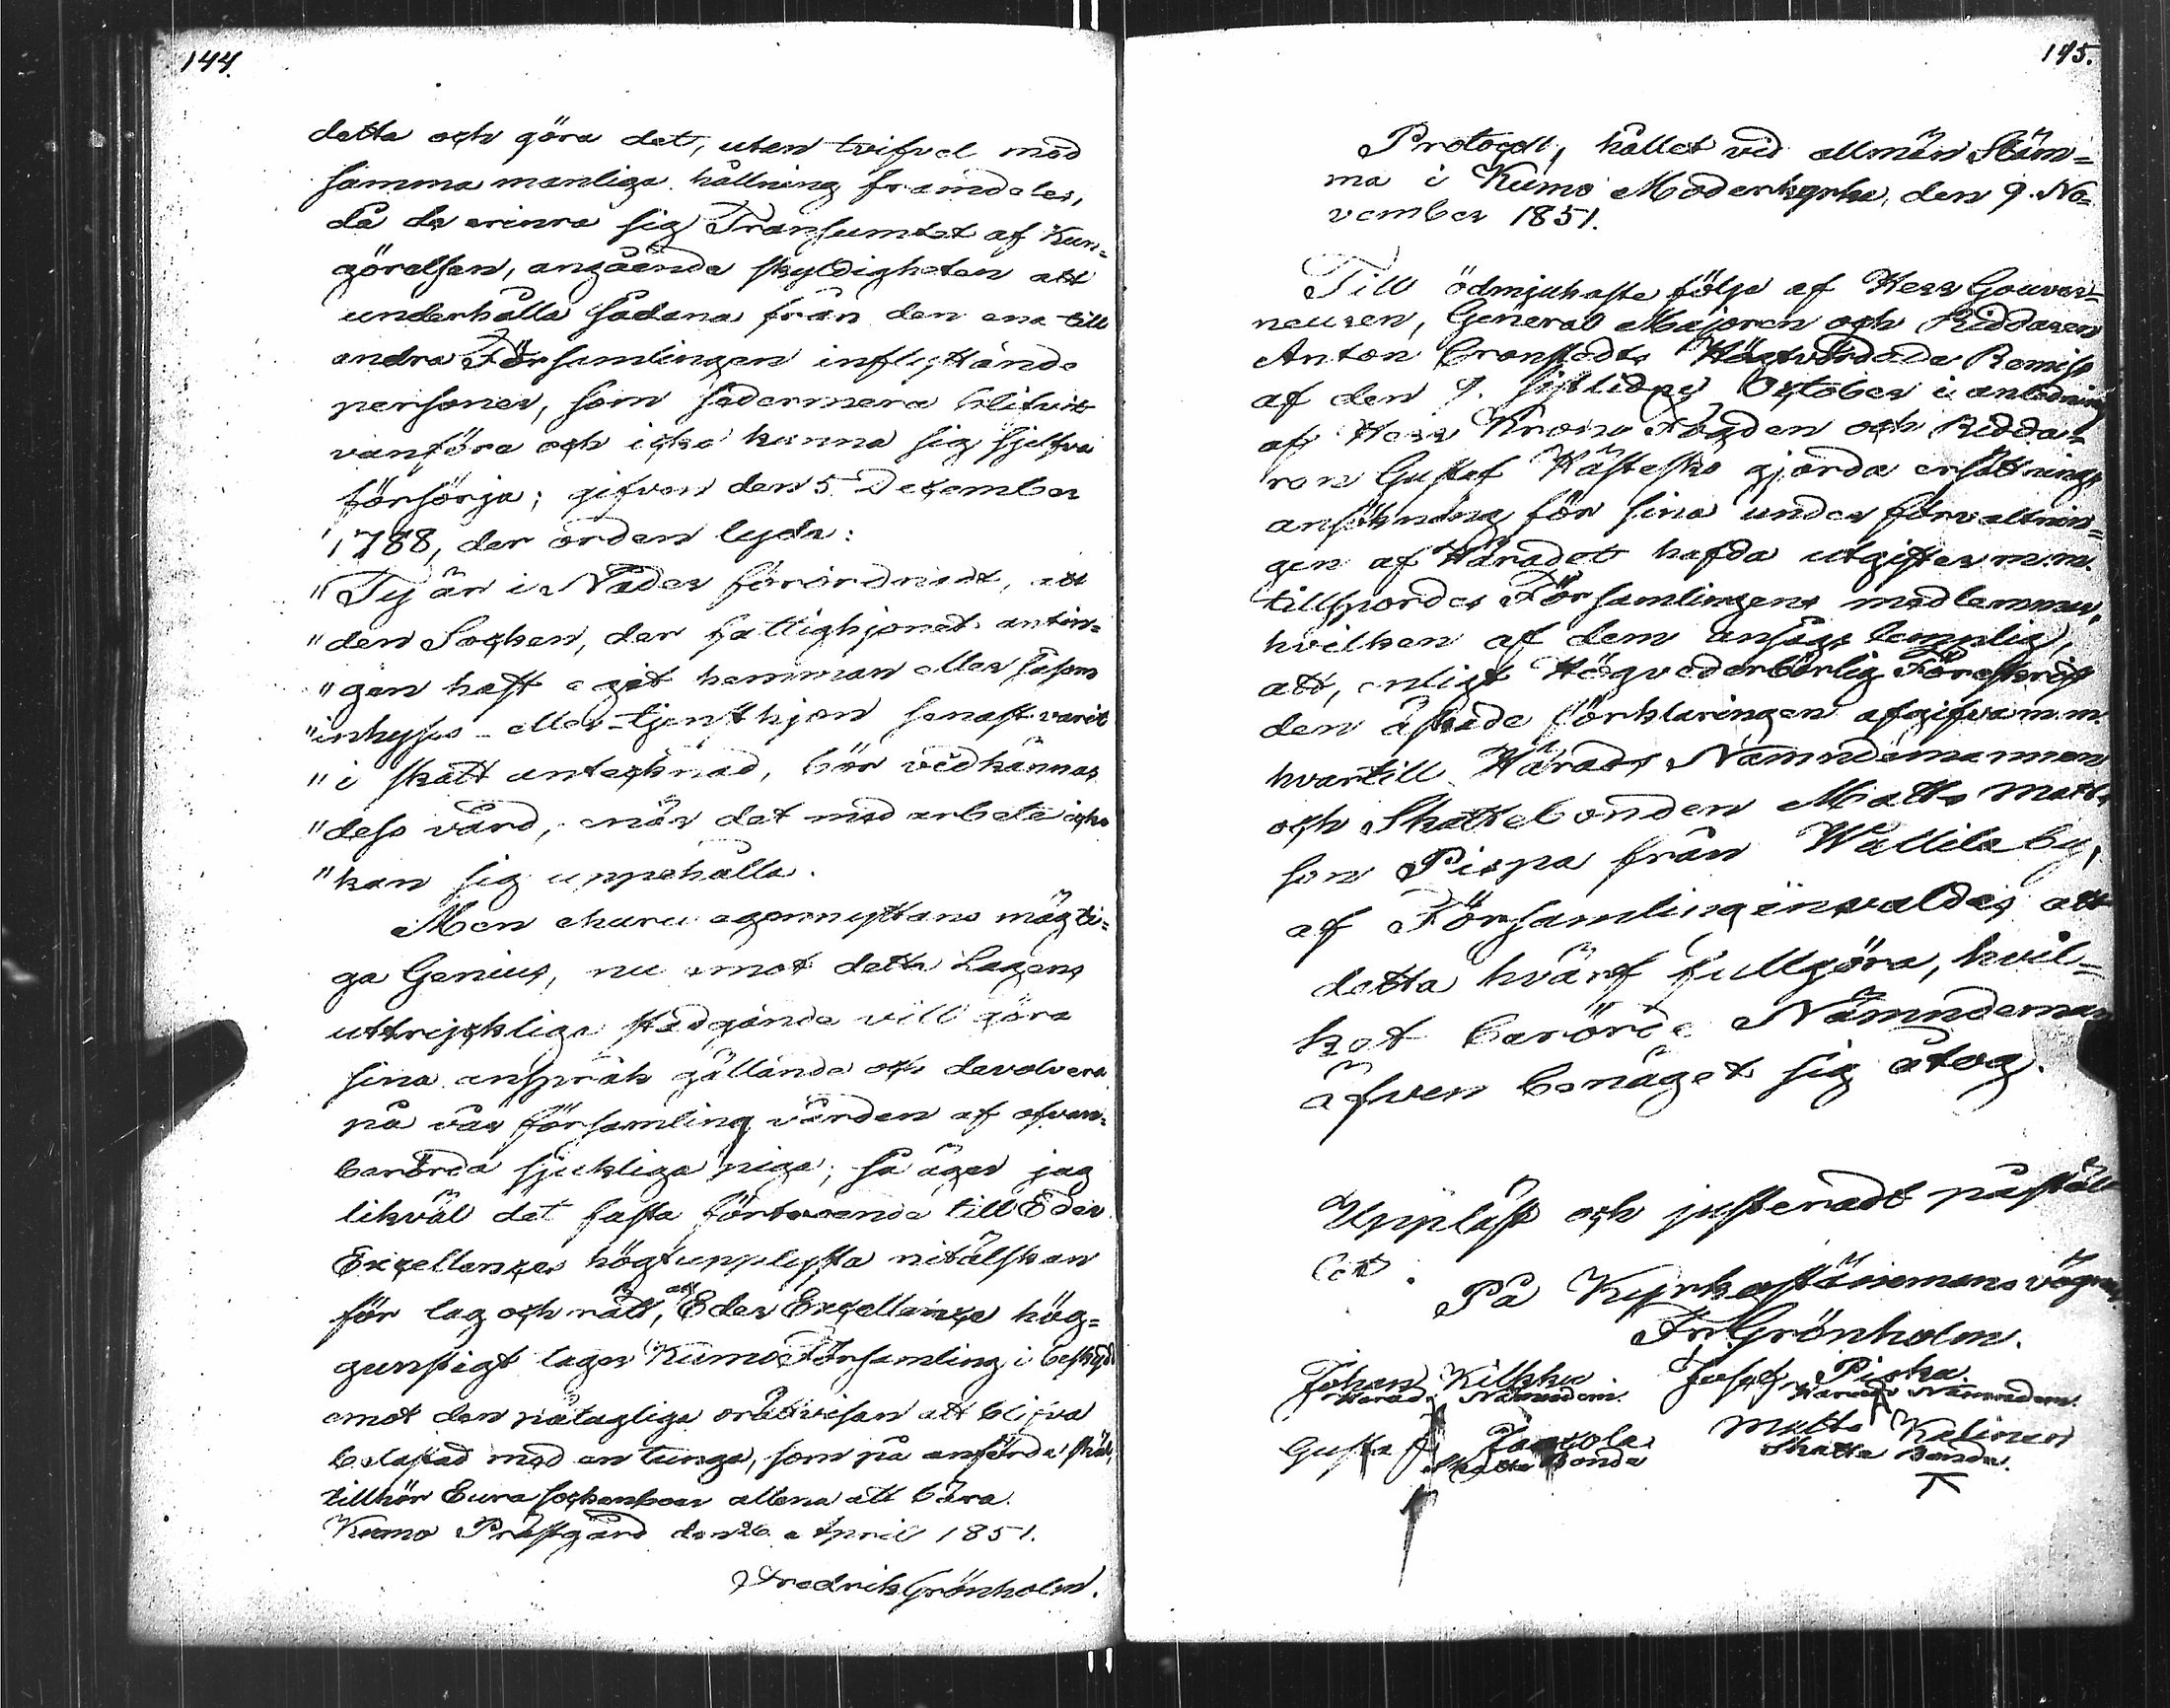 144.
detta och göra det, utan tvifvel med
samma manliga hållning framdeles,
då de erinra sig Transumtet af Kun-
görelsen, angående skyldigheten att
underhålla sådana från den ena till
andra Församlingen inflyttande
personer, som sedermera blifvit
vanföra och icke kunna sig sjelfva
försörja; gifven den 5 December
1788, der orden lyda:
"Ty är i Nåder förordnadt, att
"den Socken, der fattighjonet antin-
"gen haft eget hemman eller såsom
"inhyses- eller tjensthjon senast varit
"i skatt antecknad, bör vidkännas
"dess vård, när det med arbete icke
"kan sig uppehålla.
Men ehuru egennyttans mägti-
ga Genius, nu emot detta Lagens
uttryckliga stadgande vill göra
sina anspråk gällande och devolvera
på vår församling vården af ofvan-
berörda sjukliga piga; så äger jag
likväl det fasta förtroende till Eder
Excellences högtupplysta nitälskan
för lag och rätt, att Eder Excellence hög-
gunstigt lager Kumo Församling i beskydd
emot den påtagliga orättvisan att blifva
belastad med en tunga, som på anförda skäl,
tillhör Eura sockenboer allena att bära.
Kumo Prästgård den 26 April 1851.
Fredrik Grönholm.
145.
Protocoll, hållet vid allmän Stäm-
ma i Kumo Moderkyrka, den 9. No-
vember 1851.
Till ödmjukaste följe af Herr Gouver-
neuren, General Majoren och Riddaren
Anton Cronstedts Högtvördade Remiss
af den 9. sistlidne October i anledning
af Herr Krono Fogden och Ridda-
ren Gustaf Hästesko gjorda ersättnings
ansökning för sina under förvaltnin-
gen af Häradet hafda utgifter m.m.
tillspordes Församlingens medlemmar,
hvilken af dem ansågs lemplig,
att, enligt Högvederbörlig Föreskrift
den äskade förklaringen afgifva m.m.
hvartill Härads Nämndemannen
och Skattebonden Matts Matts
son Pispa från Wallila by,
af Församlingen valdes att
detta hvärf fullgöra, hvil-
ket berörde Nämndeman
äfven benäget sig åtog.
Uppläst och justeradt påstäl-
let.
På Kyrkostämmans vägnar
Fr. Grönholm.
Johan Kilkku Josef Piska
Härads Nämndem. Härads Nämndem.
Gustaf Matts Kalinen
Skatte Bonde Skatte Bonde.